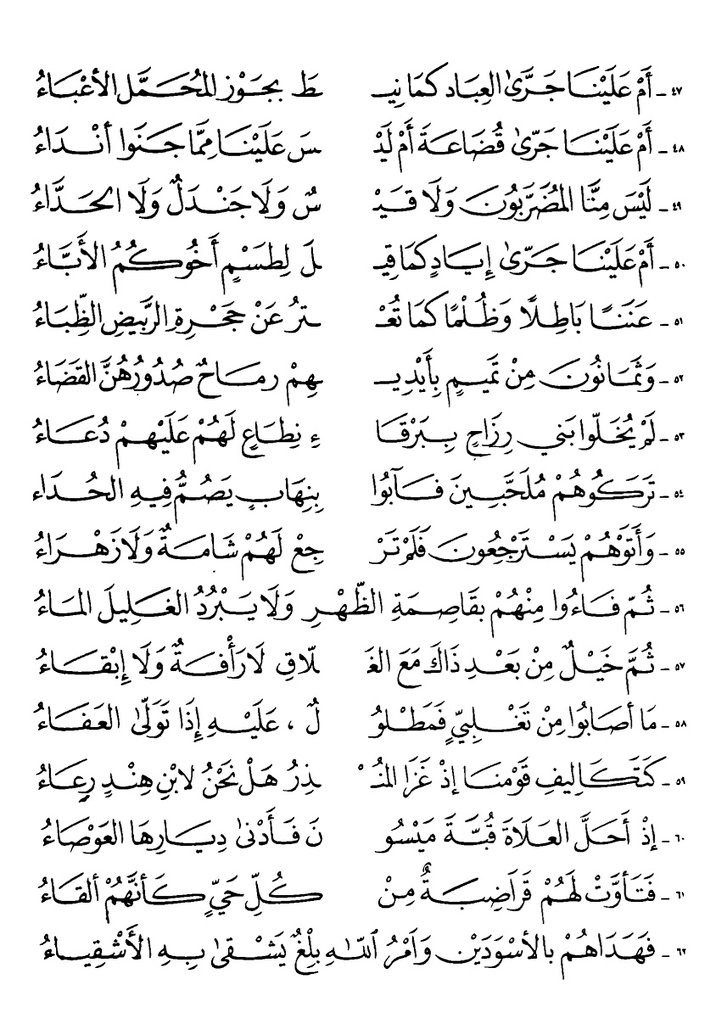 ٤٧ - أَمْ عَلَيْنَا جَرَّى العِبَادِ كَمَا نِيـ ـطَ بِجَوْزِ المُحَمَّلِ الأَعْبَاءُ
٤٨ - أَمْ عَلَيْنَا جَرَّى قُضَاعَةَ أَمْ لَيْـ ـسَ عَلَيْنَا مِمَّا جَنَوا أَنْدَاءُ
٤٩ - لَيْسَ مِنَّا المُضَرَّبُونَ وَلَا قَيْـ ـسٌ وَلَا جَنْدَلٌ وَلَا الحَدَّاءُ
٥٠ - أَمْ عَلَيْنَا جَرَّى إِيَادٍ كَمَا قِيـ ـلَ لِطَسْمٍ أَخُوكُمُ الأَبَّاءُ
٥١ - عَنَنًا بَاطِلًا وَظُلْمًا كَمَا تُعْـ ـتَرُ عَنْ حَجْرَةِ الرَّبِيضِ الظِّبَاءُ
٥٢ - وَثَمَانُونَ مِنْ تَمِيمٍ بِأَيْدِيـ ـهِمْ رِمَاحٌ صُدُورُهُنَّ القَضَاءُ
٥٣ - لَمْ يُخَلّوا بَنِي رِزَاحٍ بِبَرْقَا ءِ نِطَاعٍ لَهُمْ عَلَيْهِمْ دُعَاءُ
٥٤ - تَرَكُوهُمْ مُلَحَّبِينَ فَآبُوا بِنِهَابٍ يَصُمُّ فِيهِ الحُدَاء
٥٥ - وَأَتَوْهُمْ يَسْتَرْجِعُونَ فَلَمْ تَرْ جِعْ لَهُمْ شَامَةٌ وَلَا زَهْرَاءُ
٥٦ - ثُمّ فَاءُوا مِنْهُمْ بِقَاصِمَةِ الظّهْرِ وَلَا يَبْرُدُ الغَلِيلَ المَاءُ
٥٧ - ثُمَّ خَيْلٌ مِنْ بَعْدِ ذَاكَ مَعَ الغَـ ـلّاقِ لَا رَأْفَةٌ وَلَا إِبْقَاءُ
٥٨ - مَا أَصَابُوا مِنْ تَغْلِبِيٍّ فَمَطْلُو لٌ ، عَلَيْهِ إِذَا تَوَلّى العَفَاءُ
٥٩ - كَتَكَالِيفِ قَوْمِنَا إِذْ غَزَا المُنْـ ـذِرُ هَلْ نَحْنُ لابْنِ هِنْدٍ رِعَاءُ
٦٠ - إِذْ أَحَلَّ العَلَاةَ قُبَّةَ مَيْسُو نَ فَأَدْنَى دِيَارِهَا العَوْصَاءُ
٦١ - فَتَأَوَّتْ لَهُمْ قَرَاضِبَةٌ مِنْ كُلِّ حَيٍّ كَأَنَّهُمْ أَلْقَاءُ
٦٢ - فَهَدَاهُمْ بِالأَسْوَدَيْنِ وَأَمْرُ اللّهِ بِلْغٌ يَشْقَى بِهِ الأَشْقِيَاءُ